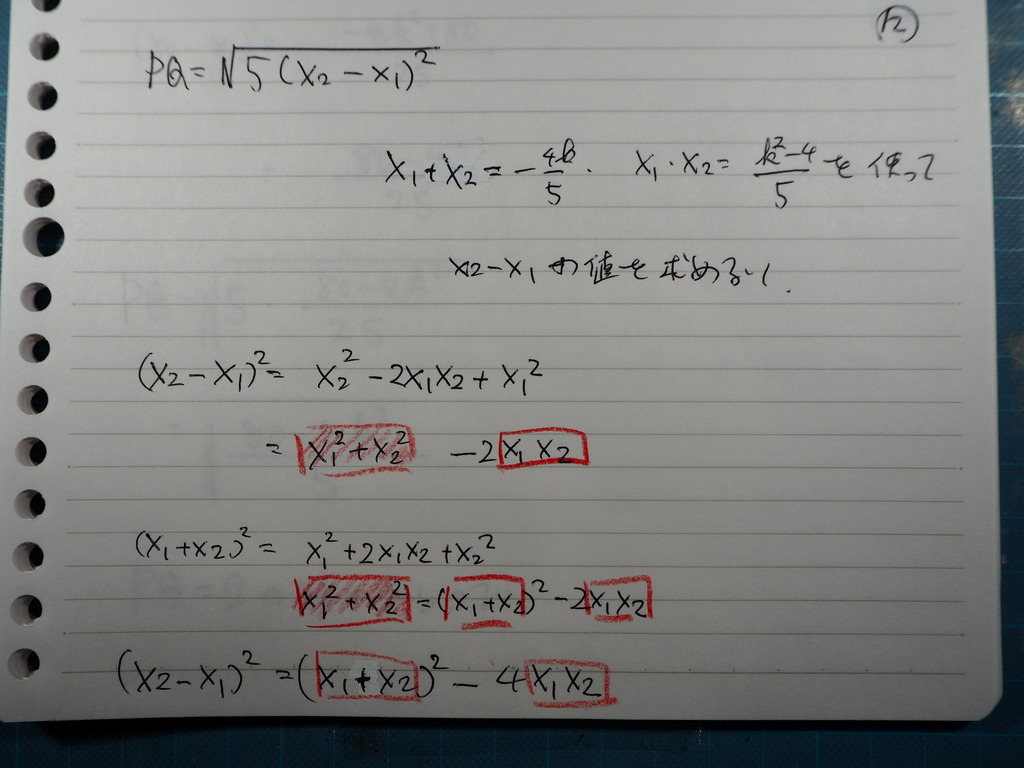 ⑫
PQ = √5(x₂ - x₁)²
x₁ + x₂ = -4k/5 . x₁・x₂ = k²-4/5 を使って
x₂ - x₁ の値を求める.
(x₂ - x₁)² = x₂² - 2x₁x₂ + x₁²
= x₁² + x₂² - 2x₁x₂
(x₁ + x₂)² = x₁² + 2x₁x₂ + x₂²
x₁² + x₂² = (x₁ + x₂)² - 2x₁x₂
(x₂ - x₁)² = (x₁ + x₂)² - 4x₁x₂